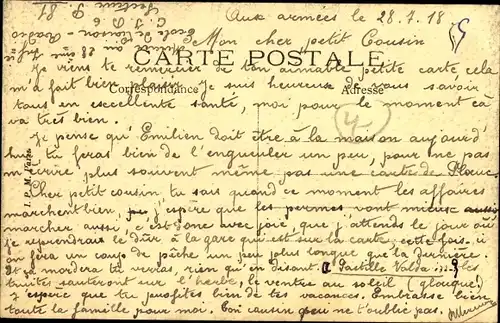 Aux armées le 28.7.18
Mon cher petit Cousin
CARTE POSTALE
Correspondance
Adresse
Je viens te remercier de ton aimable petite carte, cela
m'a fait bien plaisir. Je suis heureux de vous savoir
tous en excellente santé, moi pour le moment ça
va très bien.
Je pense qu'Emilien doit être à la maison aujourd'
hui tu feras bien de l'engueuler un peu, pour ne pas
m'écrire plus souvent même pas une carte de
Cher petit cousin tu sais quand ce moment les affaires
marchent bien, j'espère que les permes vont mieux aussi
marcher aussi, c'est donc avec joie, que j'attends le jour où
je reprendrai le dur à la gare qui est sur la carte, cette fois. ii
on fera un coup de pêche un peu plus longue que la dernière.
Et ça mordera tu verras, rien qu'en disant. Pastille Valda les
truites sauteront sur l'herbe, le ventre au soleil
J'espère que tu profites bien de tes vacances. Embrasse bien
toute la famille pour moi. Ton cousin qui ne t'oublie pas.